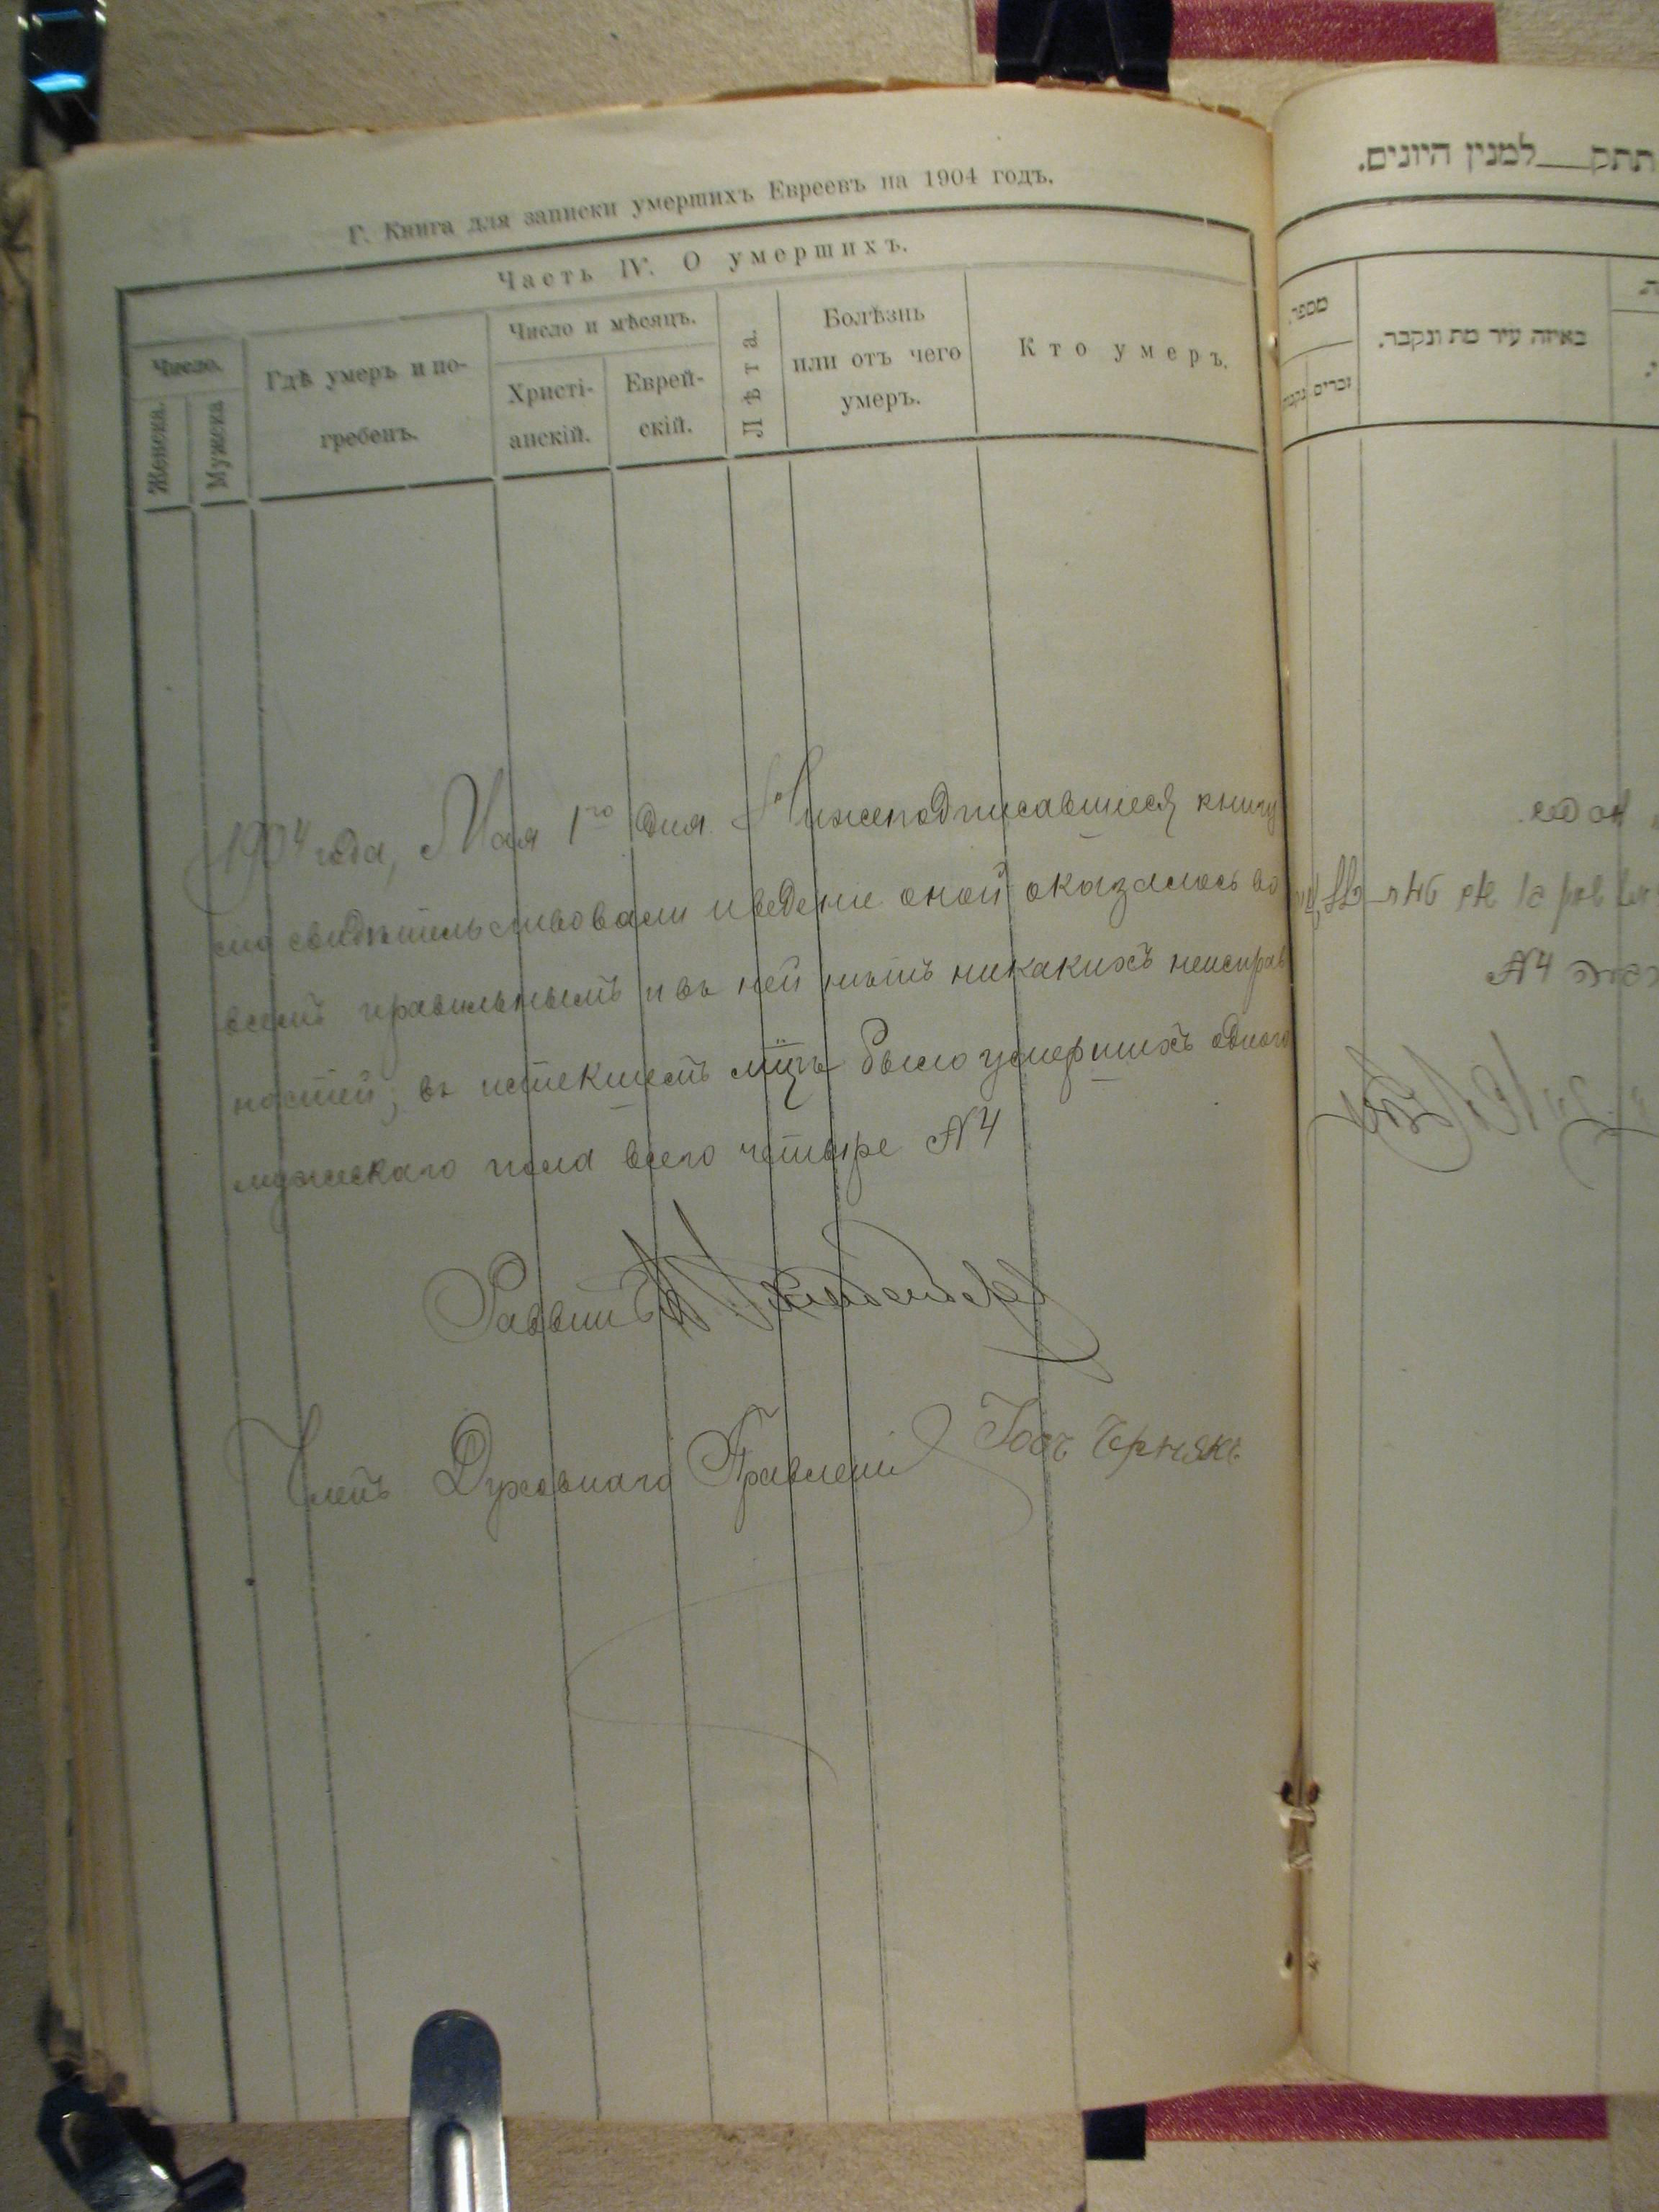 Г. Книга для записки умершихъ Евреевъ на 1904 годъ.
Часть IV. О умершихъ.
Число.
Женска.
Мужска
Гдѣ умеръ и по-
гребенъ.
Число и мѣсяцъ.
Христі-
анскій.
Еврей-
скій.
Лѣта.
Болѣзнь
или отъ чего
умеръ.
Кто умеръ.
1904 года, Мая 1го дня Нижеподписавшиеся книгу
сию свидѣтельствовали и ведение оной оказалось во
всемъ правильнымъ и въ ней нѣтъ никакихъ неисправ
ностей; въ истекшемъ мцѣ было умершихъ одного
мужескаго пола всего четыре №4
Раввинъ
Членъ Духовнаго Правления Іосъ Чернякъ
תתק למנין היונים.
מספר
נקבות
זכרים
באיזה עיר מת ונקבר.
№4